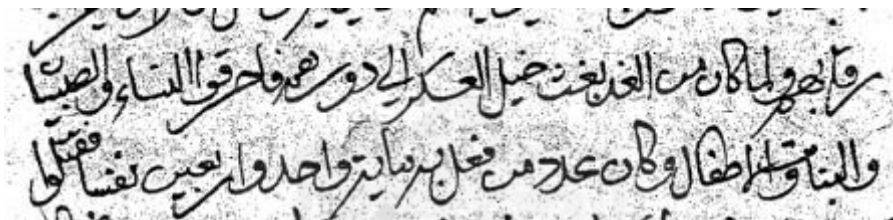 رقابهم ولما كان من الغد بغت خيل العسكر الي دورهم فاحرقوا النساء والصبيان
والبنات والاطفال وكان عدد من فعل به واحد واربعين نفسا فقتلوا